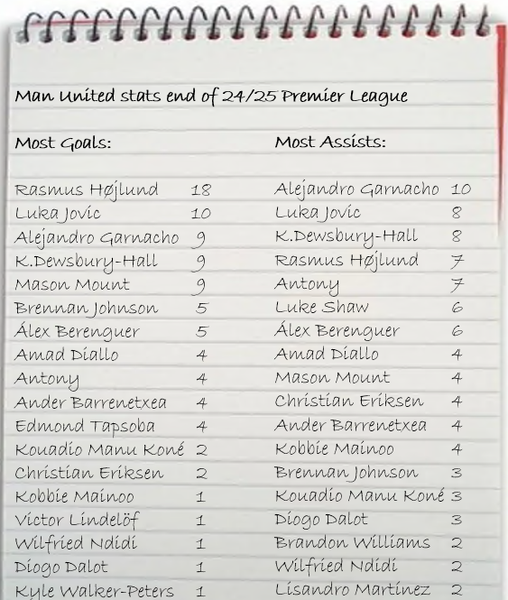 Man United stats end of 24/25 Premier League
Most Goals: Most Assists:
Rasmus Højlund 18 Alejandro Garnacho 10
Luka Jovic 10 Luka Jovic 8
Alejandro Garnacho 9 K.Dewsbury-Hall 8
K.Dewsbury-Hall 9 Rasmus Højlund 7
Mason Mount 9 Antony 7
Brennan Johnson 5 Luke Shaw 6
Álex Berenguer 5 Álex Berenguer 6
Amad Diallo 4 Amad Diallo 4
Antony 4 Mason Mount 4
Ander Barrenetxea 4 Christian Eriksen 4
Edmond Tapsoba 4 Ander Barrenetxea 4
Kouadio Manu Koné 2 Kobbie Mainoo 4
Christian Eriksen 2 Brennan Johnson 3
Kobbie Mainoo 1 Kouadio Manu Koné 3
Victor Lindelöf 1 Diogo Dalot 3
Wilfried Ndidi 1 Brandon Williams 2
Diogo Dalot 1 Wilfried Ndidi 2
Kyle Walker-Peters 1 Lisandro Martínez 2